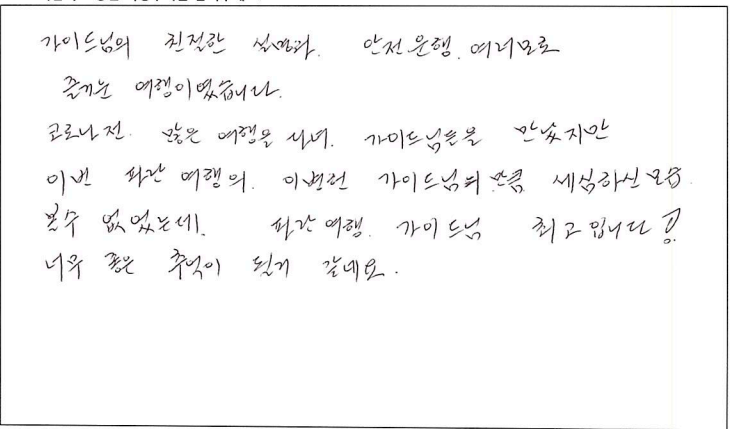 가이드님의 친절한 설명과. 안전운행. 여러모로
즐거운 여행이였습니다.
코로나전. 많은 여행을 다녀. 가이드님들을 만났지만
이번 파란 여행의. 이변런 가이드님의 만큼 세심하신 모습.
볼수 없었는데. 파란여행. 가이드님 최고입니다!
너무 좋은 추억이 될거 같네요.